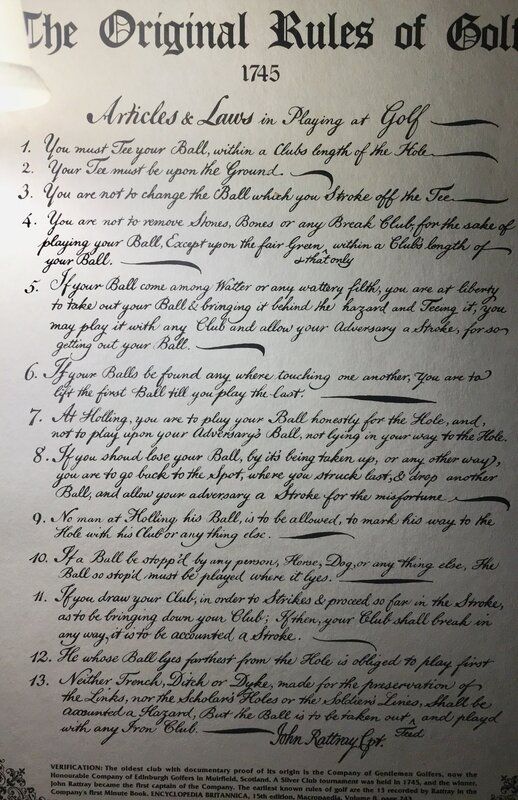 The Original Rules of Golf
1745
Articles & Laws in Playing at Golf
1. You must Tee your Ball, within a Clubs length of the Hole
2. Your Tee must be upon the Ground
3. You are not to change the Ball which you Stroke off the Tee
4. You are not to remove Stones, Bones or any Break Club, for the sake of
playing your Ball, Except upon the fair Green, within a Club's length of
your Ball. & that only
5. If your Ball come among Watter or any wattery filth, you are at liberty
to take out your Ball & bringing it behind the hazard and Teeing it, you
may play it with any Club and allow your Adversary a Stroke, for so
getting out your Ball.
6. If your Balls be found any where touching one another, You are to
lift the first Ball till you play the last.
7. At Holling, you are to play your Ball honestly for the Hole, and,
not to play upon your Adversary's Ball, not lying in your way to the Hole.
8. If you should lose your Ball, by it's being taken up, or any other way,
you are to go back to the Spot, where you struck last, & drop another
Ball, and allow your adversary a Stroke for the misfortune
9. No man at Holling his Ball, is to be allowed, to mark his way to the
Hole with his Club or any thing else.
10. If a Ball be stopp'd by any person, Horse, Dog, or any thing else, The
Ball so stop'd must be played where it lyes.
11. If you draw your Club, in order to Strike & proceed so far in the Stroke,
as to be bringing down your Club; If then, your Club shall break in
any way, it is to be accounted a Stroke.
12. He whose Ball lyes farthest from the Hole is obliged to play first
13. Neither Trench, Ditch or Dyke, made for the preservation of
the Links, nor the Scholar's Holes or the Soldier's Lines, Shall be
accounted a Hazard, But the Ball is to be taken out ^ and play'd
Teed
with any Iron Club. John Rattray Cpt.
VERIFICATION: The oldest club with documentary proof of its origin is the Company of Gentlemen Golfers, now the
Honourable Company of Edinburgh Golfers in Muirfield, Scotland. A Silver Club tournament was held in 1745, and the winner,
John Rattray became the first captain of the Company. The earliest known rules of golf are the 13 recorded by Rattray in the
Company's first Minute Book. ENCYCLOPEDIA BRITANNICA, 15th edition, Macropaedia, Volume